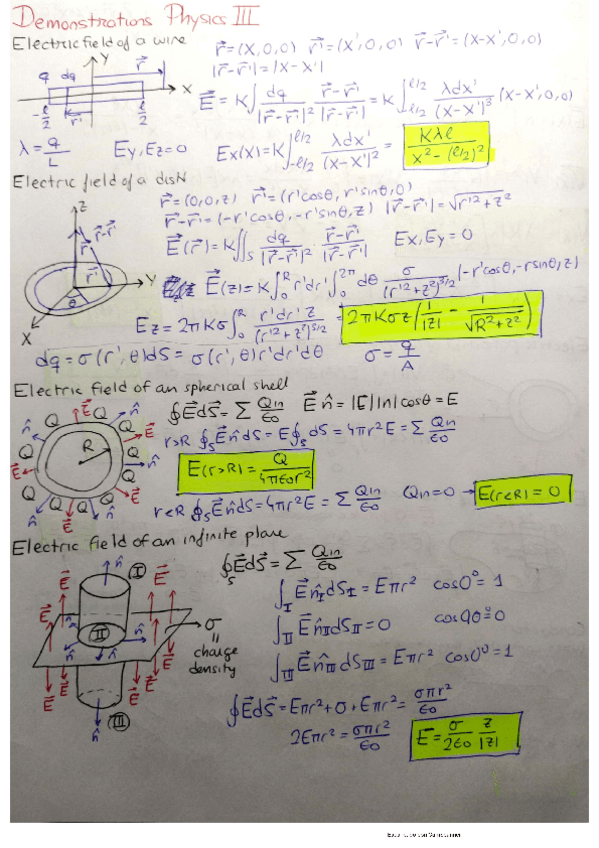 Demonstrations Physics III
Electric field of a wire
r⃗ = (x,0,0)  r⃗' = (x',0,0)  r⃗-r⃗' = (x-x',0,0)
|r⃗-r⃗'| = |x-x'|
q dq Y r⃗ X -l/2 r⃗' l/2
E⃗ = K∫ dq/|r⃗-r⃗'|² (r⃗-r⃗')/|r⃗-r⃗'| = K∫_{-l/2}^{l/2} λdx'/|x-x'|³ (x-x',0,0)
λ = q/L  Ey,Ez=0  Ex(x) = K∫_{-l/2}^{l/2} λdx'/(x-x')² = Kλl/(x²-(l/2)²)
Electric field of a disk
r⃗ = (0,0,z)  r⃗' = (r'cosθ, r'sinθ, 0)
r⃗-r⃗' = (-r'cosθ, -r'sinθ, z)  |r⃗-r⃗'| = √(r'²+z²)
Z r⃗ r⃗-r⃗' r⃗' θ Y X
E⃗(r⃗) = K∬_S dq/|r⃗-r⃗'|² (r⃗-r⃗')/|r⃗-r⃗'|  Ex,Ey=0
E⃗(z) = K∫_0^R r'dr'∫_0^{2π} dθ σ/(r'²+z²)^{3/2} (-r'cosθ, -rsinθ, z)
Ez = 2πKσ∫_0^R r'dr'z/(r'²+z²)^{3/2} = 2πKσz(1/|z| - 1/√(R²+z²))
dq = σ(r',θ)dS = σ(r',θ)r'dr'dθ  σ = q/A
Electric field of an spherical shell
∮E⃗dS⃗ = Σ Qin/ε0  E⃗ n̂ = |E||n|cosθ = E
r>R ∮_S E⃗n̂dS = E∮_S dS = 4πr²E = Σ Qin/ε0
E(r>R) = Q/4πε0r²
r<R ∮_S E⃗n̂dS = 4πr²E = Σ Qin/ε0  Qin=0 → E(r<R) = 0
n̂ E⃗ Q R
Electric field of an infinite plane
∮_S E⃗dS⃗ = Σ Qin/ε0
∫_I E⃗n̂_I dS_I = Eπr²  cos0° = 1
∫_II E⃗n̂_II dS_II = 0  cos90° = 0
∫_III E⃗n̂_III dS_III = Eπr²  cos0° = 1
n̂ I E⃗ II III
σ = charge density
∮E⃗dS⃗ = Eπr²+0+Eπr² = σπr²/ε0
2Eπr² = σπr²/ε0  E⃗ = σ/2ε0 z/|z|